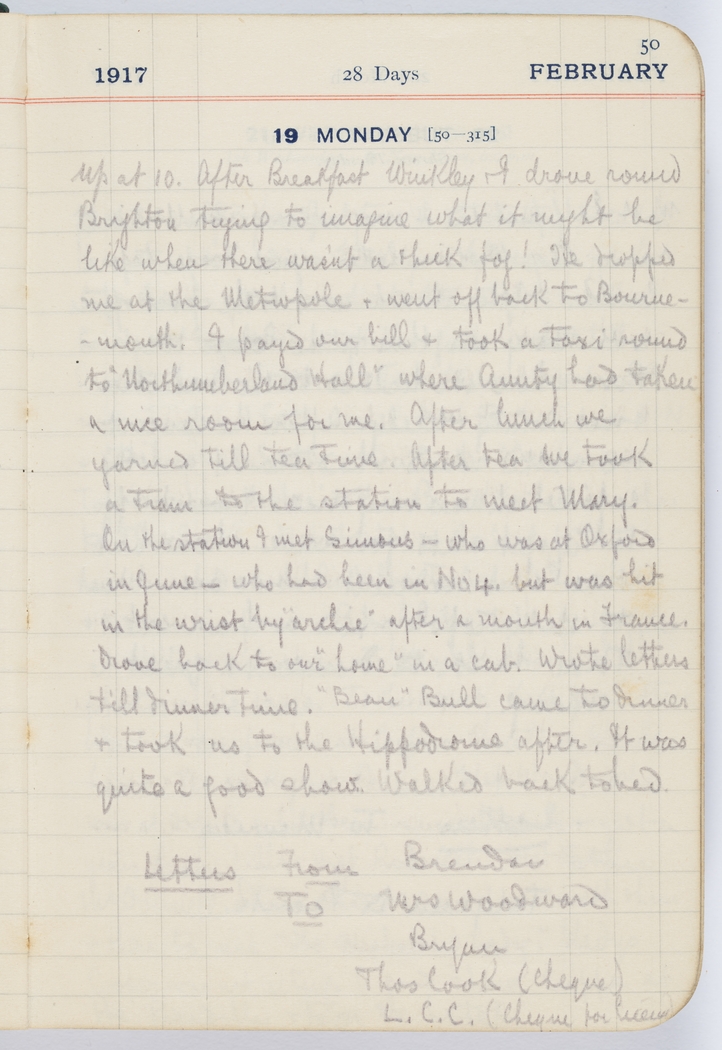 50
1917 28 Days FEBRUARY
19 MONDAY [50—315]
Up at 10. After Breakfast Winkley & I drove round
Brighton trying to imagine what it might be
like when there wasn't a thick fog! He dropped
me at the Metropole & went off back to Bourne-
-mouth. I payed our bill & took a taxi round
to "Northumberland Hall" where Aunty had taken
a nice room for me. After lunch we
yarned till tea time. After tea we took
a tram to the station to meet Mary.
On the station I met Simons – who was at Oxford
in June – who had been in No 4. but was hit
in the wrist by "archie" after a month in France.
Drove back to our "home" in a cab. Wrote letters
till dinner time. "Bean" Bull came to dinner
& took us to the Hippodrome after. It was
quite a good show. Walked back to bed.
Letters From Brendan
To Mrs Woodward
Bryan
Thos Cook (Cheque)
L.C.C. (Cheque for